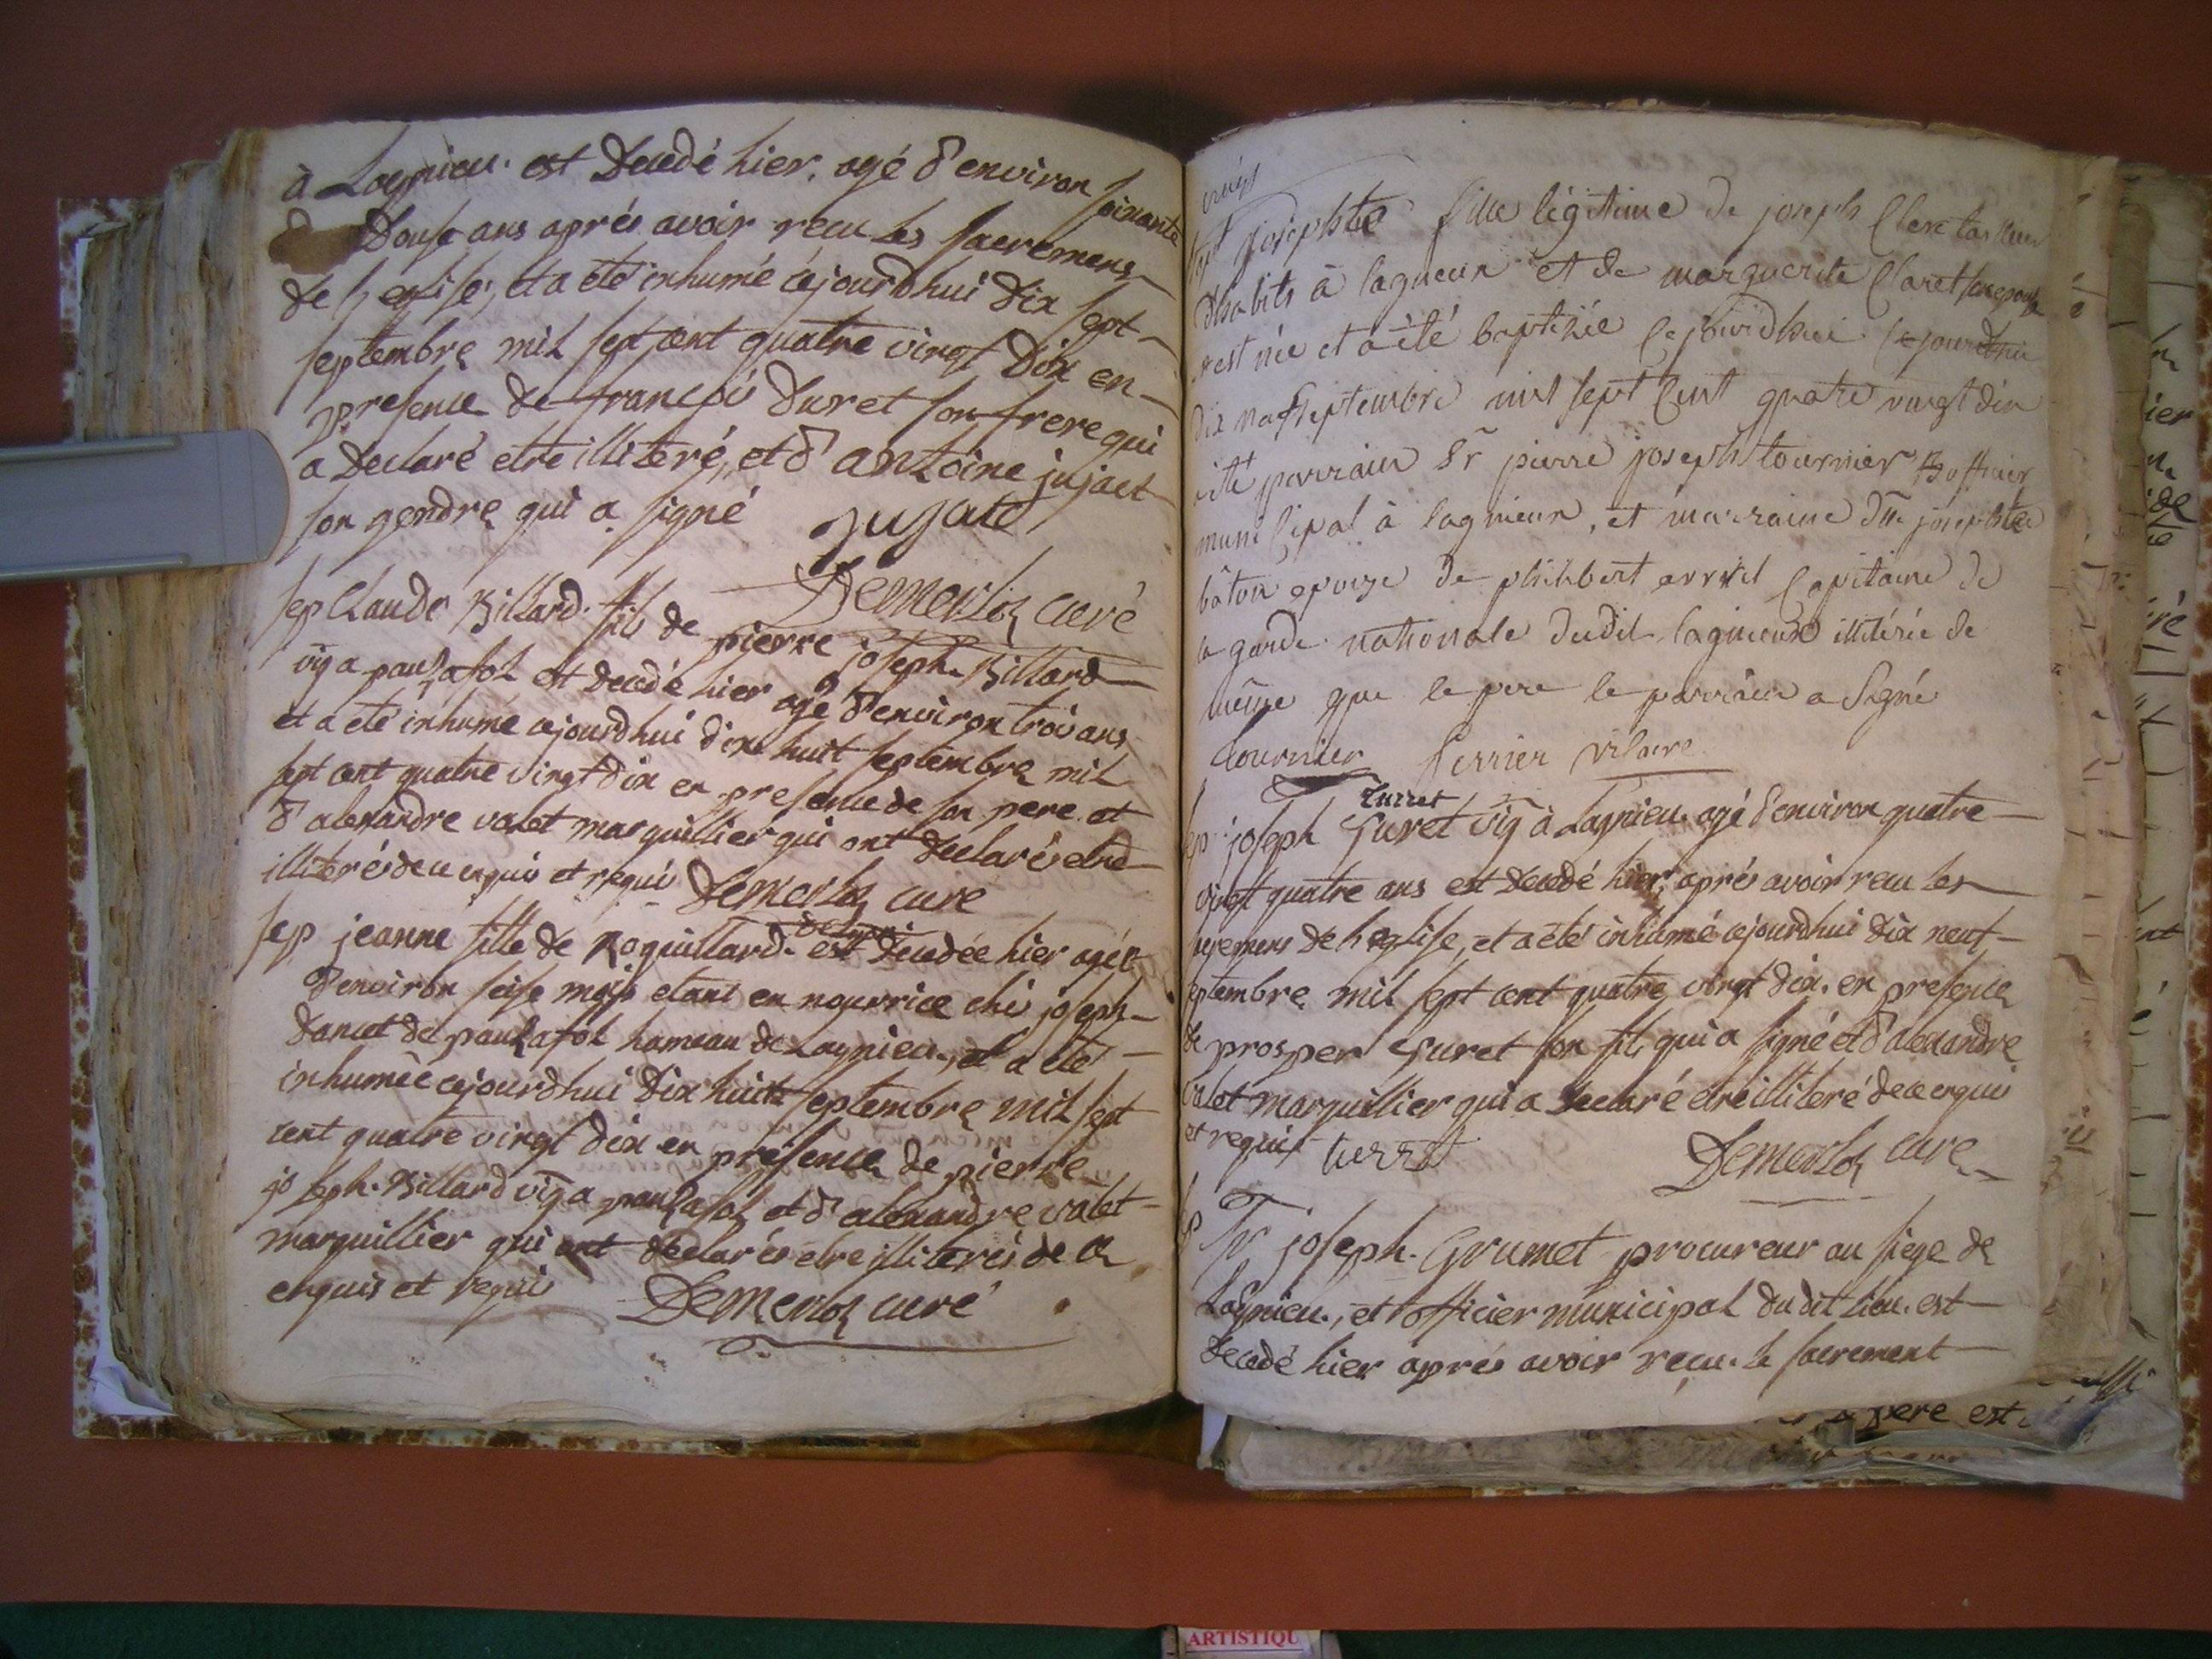 à Lagnieu. est Decedé hier. agé d'environ soixante
Douse ans aprés avoir recu les sacremens
de l'eglise, et a eté inhumé cejourdhui dix sept
septembre mil sept cent quatre vingt Dix en
presence de francois Duret son frere qui
a Declaré etre illiteré, et d'antoine jujact
son gendre qui a signé jujate
Demerloz curé
sep Claude Billard. fils de pierre joseph Billard
vig a paul afol est decedé hier agé d'environ trois ans
et a eté inhumé cejourdhui dix huit septembre mil
sept cent quatre vingt dix en presence de son pere et
d'alexandre valet marguillier qui ont declarés etre
illiterés de ce enquis et requis Demerloz curé
sep jeanne fille de Roquillard. est decedée hier agée
d'environ seise mois etant en nourrice ché joseph
dancet de paul afol hameau de Lagnieu, et a eté
inhumée cejourdhui dix huit septembre mil sept
cent quatre vingt dix en presence de pierre
joseph Billard vig a paul afol et d'alexandre valet
marguillier qui ont declarés etre illiterés de ce
enquis et requis Demerloz curé
vingt
bapt josephte fille légitime de joseph Clerc tailleur
d'habits à lagnieux et de marguerite Claret son epouse
est née et a été baptisée cejourdhui cejourdhui
dix neuf septembre mil sept cent quatre vingt dix
été parrain Sr pierre joseph tournier officier
municipal à lagnieux, et marraine dlle josephte
bâton epouse de philibert arrivel Capitaine de
la garde nationale dudit lagnieux illitérée de
même que le pere le parrain a signé
tournier ferrier vicaire
turret
sep joseph Turet vig à Lagnieu. agé d'environ quatre
vingt quatre ans est decedé hier, aprés avoir recu les
sacremens de l'eglise, et a eté inhumé cejourdhui dix neuf
septembre mil sept cent quatre vingt dix. en presence
de prosper Turet son fils qui a signé et d'alexandre
valet marguillier qui a declaré etre illiteré de ce enquis
et requis turret Demerloz curé
sp Sr joseph. Grumet procureur au siege de
Lagnieu., et officier municipal dudit lieu. est
decedé hier aprés avoir reçu. le sacrement
pere est
ARTISTIQU